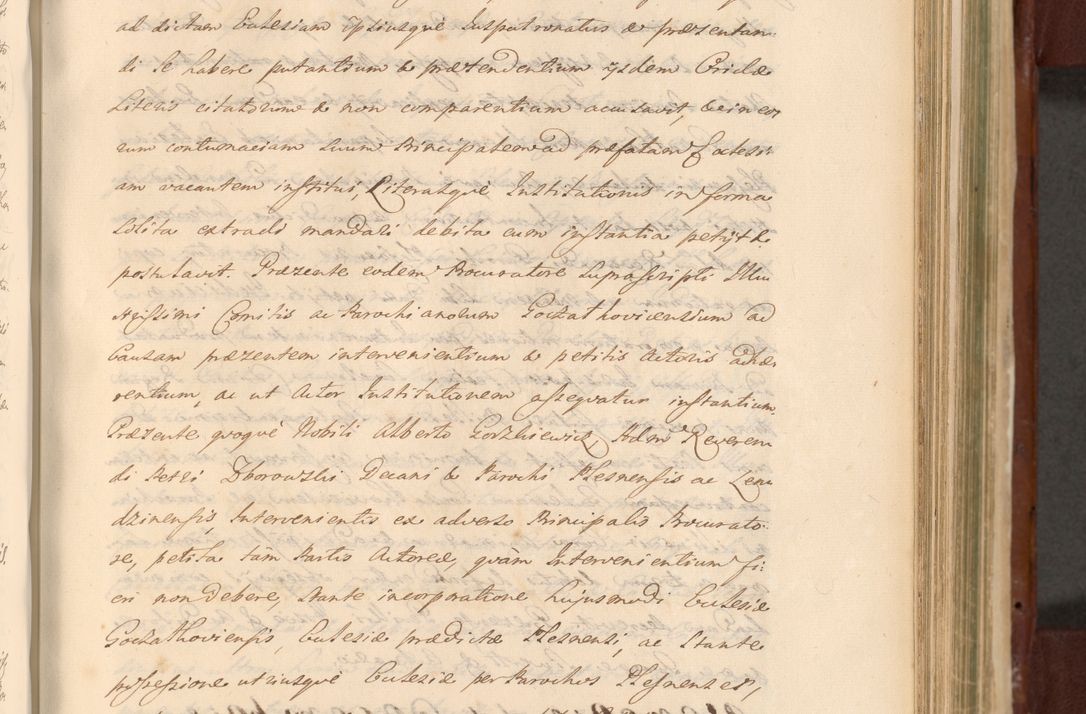 ad dictam Eccلesiam ipsiusquè Juspatronatus & præsentan
di se habere putantium & prætendentium ijsdem Crîdæ
Literis citatorum & non comparentium accusavit, & in eo
rum contumaciam suum Principalem ad præfatam Ecclesi
am vacantem institui, Literasquè Institutionis in forma
solita extradi mandari debita cum instantia petijt &
postulavit. Præzente eodem Procuratore suprascripti Illu
strissimi Comitis ac Parochianorum Goczałkovicensium ad
Causam præzentem intervenientium & petitis Actoris adhæ
rentium, ac ut Actor Institutionem assequatur instantium.
Præzente quoquè Nobili Alberto Gorzkiewicz, Adm Reveren
di Petri Zborowski Decani & Parochi Plesnensis ac Len
dzinensis, Intervenientis ex adverso Principalis Procurato-
re, petita tàm Partis Actoreæ, quàm Intervenientium fi-
eri non debere, stante incorporatione hujusmodi Ecclesiæ
Goczałkoviensis, Ecclesiæ prædictæ Plesnensi, ac stante
possessione utriusquè Ecclesiæ per Parochos Plesnenses,